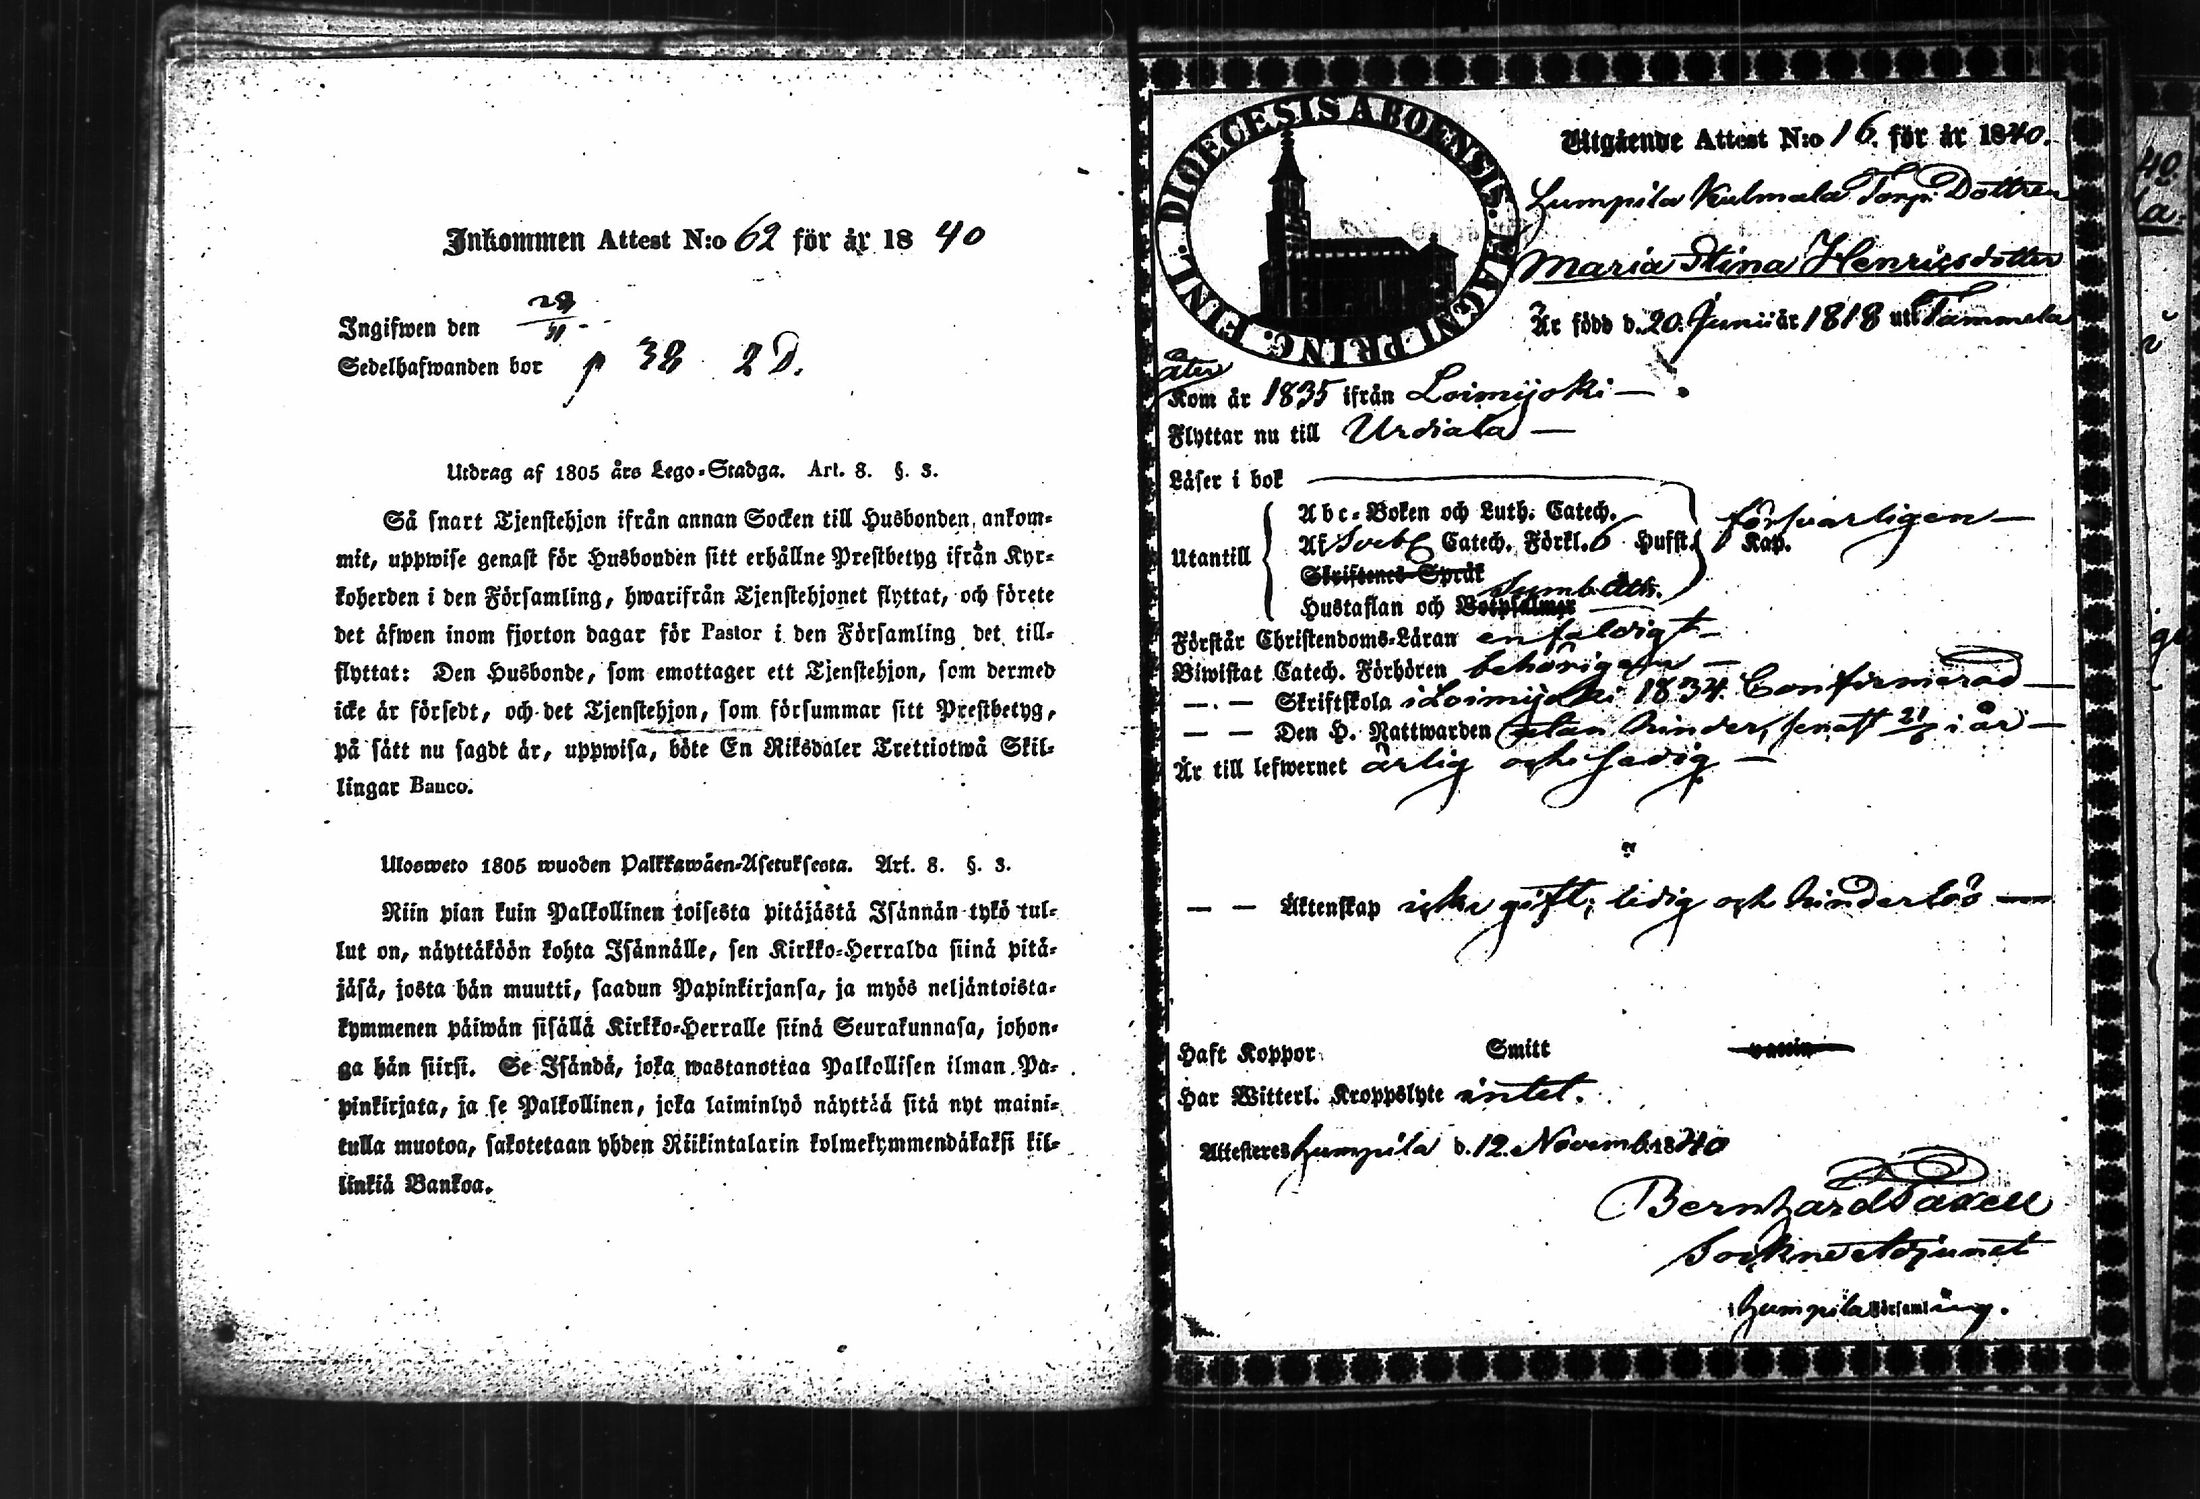 Inkommen Attest N:o 62 för år 18 40
Ingifwen den
Sedelhafwanden bor p 38 2 D.
Utdrag af 1805 års Lego-Stadga. Art. 8. §. 3.
Så snart Tjenstehjon ifrån annan Socken till Husbonden ankom-
mit, uppwise genast för Husbonden sitt erhållne Prestbetyg ifrån Kyr-
koherden i den Församling, hwarifrån Tjenstehjonet flyttat, och förete
det äfwen inom fjorton dagar för Pastor i den Församling det till-
flyttat: Den Husbonde, som emottager ett Tjenstehjon, som dermed
icke är försedt, och det Tjenstehjon, som försummar sitt Prestbetyg,
på sätt nu sagdt är, uppwisa, böte En Riksdaler Trettiotwå Skil-
lingar Banco.
Ulosweto 1805 wuoden Palkkawäen-Asetuksesta. Art. 8. §. 3.
Niin pian kuin Palkollinen toisesta pitäjästä Isännän tykö tul-
lut on, näyttäköön kohta Isännälle, sen Kirkko-Herralda siinä pitä-
jäsä, josta hän muutti, saadun Papinkirjansa, ja myös neljäntoista-
kymmenen päiwän sisällä Kirkko-Herralle siinä Seurakunnasa, johon-
ga hän siirsi. Se Isändä, joka wastanottaa Palkollisen ilman Pa-
pinkirjata, ja se Palkollinen, joka laiminlyö näyttää sitä nyt maini-
tulla muotoa, sakotetaan yhden Riikintalarin kolmekymmendäkaksi kil-
linkiä Bankoa.
DIOECESIS ABOENSIS. MAGNI PRINC. FINL.
Utgående Attest N:o 16. för år 1840.
Lumpila Kulmala Torp. Dottren
Maria Stina Henricsdotter
Är född d. 20. Junii år 1818 uti Tammela
åter
Kom år 1835 ifrån Loimijoki
Flyttar nu till Urdiala
Läser i bok
Abc-Boken och Luth. Catech.
försvarligen
Utantill
Af Sveb. Catech. Förkl. 6 Hufst. Kap.
Skriftenes Språk
Symb. Ath.
Hustaflan och Botpsalmer
Förstår Christendoms-Läran enfaldigt
Biwistat Catech. Förhören behörigen
— Skriftskola i Loimijoki 1834. Confirmerad
— — Den H. Nattwarden utan hinder, senast i år
Är till lefwernet ärlig och sedig
— — Äktenskap icke gift; ledig och hinderlös
Haft Koppor Smitt vaccin
Har Witterl. Kroppslyte intet.
Attesteres Humpila d. 12. Novemb. 1840
Bernhard Paxell
Sockne Adjunct
i Humpila Församling.